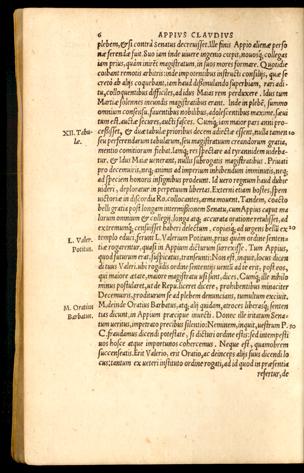 6 APPIUS CLAUDIUS
plebem, & si contrà Senatus decreuisset. Ille finis Appio alienæ perso
næ ferendæ fuit. Suo iam inde uiuere ingenio cœpit, nouosq; collegas
iam prius, quàm inirét magistratum, in suos mores formare. Quotidie
coibant remotis arbitris: inde impotentibus instructi consilijs, quæ se
cretò ab alijs coquebant, iam haud dissimulando superbiam, rari adi-
tu, colloquentibus difficiles, ad idus Maias rem perduxere. Idus tum
Martiæ solennes incundis magistratibus erant. Inde in plebē, summo
omnium consensu, fœuentibus nobilibus, adolescentibus
est, auctæ secures, auctí fasces. Cumq; iam maior pars anni pro-
XII. Tabu-
læ.
cessisset, & duæ tabulæ prioribus decem adiectæ essent, nulla tamen 10
seu perferendarum tabularum, seu magistratuum creandorum gratia,
mentio comitiorum fiebat. Ianq; res spectare ad tyrannidem uideba-
tur. & Idus Maiæ uenerant, nullis subrogatis magistratibus. Priuati
pro decemuiris, neq; animis ad imperium inhibendum imminutis, neq;
ad speciem honoris insignibus prodeunt. Id uero regnum haud dubiè
uideri, deploratur in perpetuum libertas. Externi etiam hostes, spem
uictoriæ in discordia Ro. collocantes, arma mouent. Tandem, coacto
belli gratia post longam intermissionem Senatu, cum Appius caput ma
lorum omnium & collegij, longa atq; accurata oratione retulisset, ad
extremumq; censuisset haberi delectum, copiasq; ad urgens belli ex- 20
L. Valer.
Potitus.
templo educi, ferunt L. Valerium Potitum, prius quàm ordine senten-
tiæ rogarentur, quasi in Appium dicturum surrexisse. Tum Appius,
quod futurum erat, suspicatus, transeunti: Non est, inquit, locus dicen
di tuus Valeri. ubi rogatis ordine sententijs uentū ad te erit, post eos,
qui maiores ætate, maiore magistratu usi sunt, dices. Cumq; ille nihilo
minus postularet, ut de Repu. liceret dicere, prohibentibus minaciter
Decemuiris, proditurum se ad plebem denuncians, tumultum exciuit.
M. Oratius
Barbatus.
M. deinde Oratius Barbatus, atq; alij quidam, atroces libereasq; senten
tias dicunt, in Appium præcipue inuecti. Donec ille irritatum Sena-
tum ueritus, impetrato precibus silentio: Neminem, inquit, uestrum P. 30
C. fraudamus dicendi potestate, si dicturi ordine estis: sed intempesti
uos hosce atque importunos cohercemus. Neque est, quamobrem
succenseatis. Erit Valerio, erit Oratio, ac deinceps alijs suus dicendi lo
cus: tantum ex ueteri instituto ordine rogati, ad id quod in præsentia
refertur, de